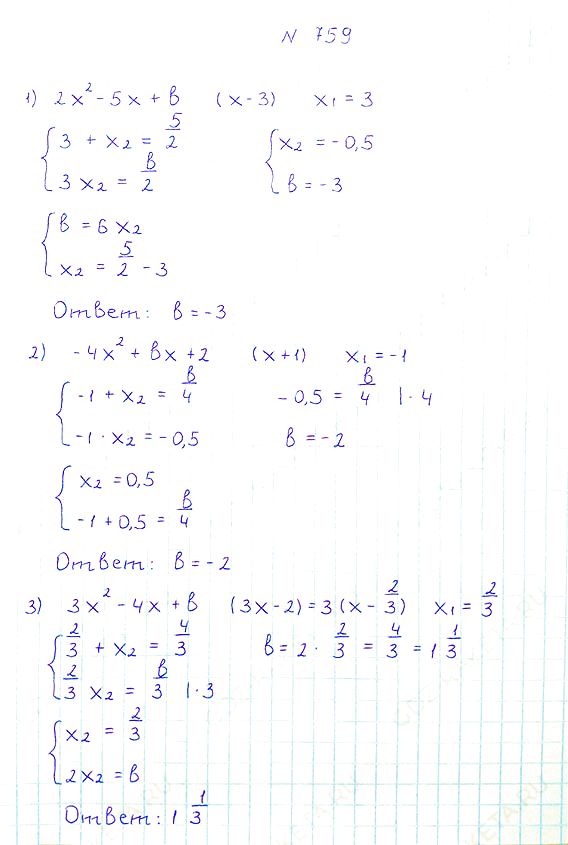 N 759
1) 2x² - 5x + b (x-3) x₁ = 3
{ 3 + x₂ = 5/2
{ 3x₂ = b/2
{ x₂ = -0,5
{ b = -3
{ b = 6x₂
{ x₂ = 5/2 - 3
Ответ: b = -3
2) -4x² + bx + 2 (x+1) x₁ = -1
{ -1 + x₂ = b/4
{ -1 · x₂ = -0,5
-0,5 = b/4 | · 4
b = -2
{ x₂ = 0,5
{ -1 + 0,5 = b/4
Ответ: b = -2
3) 3x² - 4x + b (3x-2) = 3(x - 2/3) x₁ = 2/3
{ 2/3 + x₂ = 4/3
{ 2/3 x₂ = b/3 | · 3
b = 2 · 2/3 = 4/3 = 1 1/3
{ x₂ = 2/3
{ 2x₂ = b
Ответ: 1 1/3